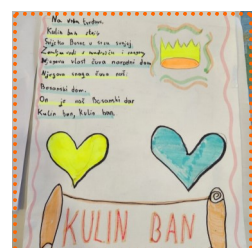 Na vrhu brdom
Kulin ban stoji
Svijetlu Bosnu u srcu svojoj.
Zemlju vodi s mudrošću i
Njegova vlast čuva narodni dom.
Njegova snaga čuva
Bosanski dom.
On je naš Bosanski dar
Kulin ban, Kulin ban.
KULIN BAN